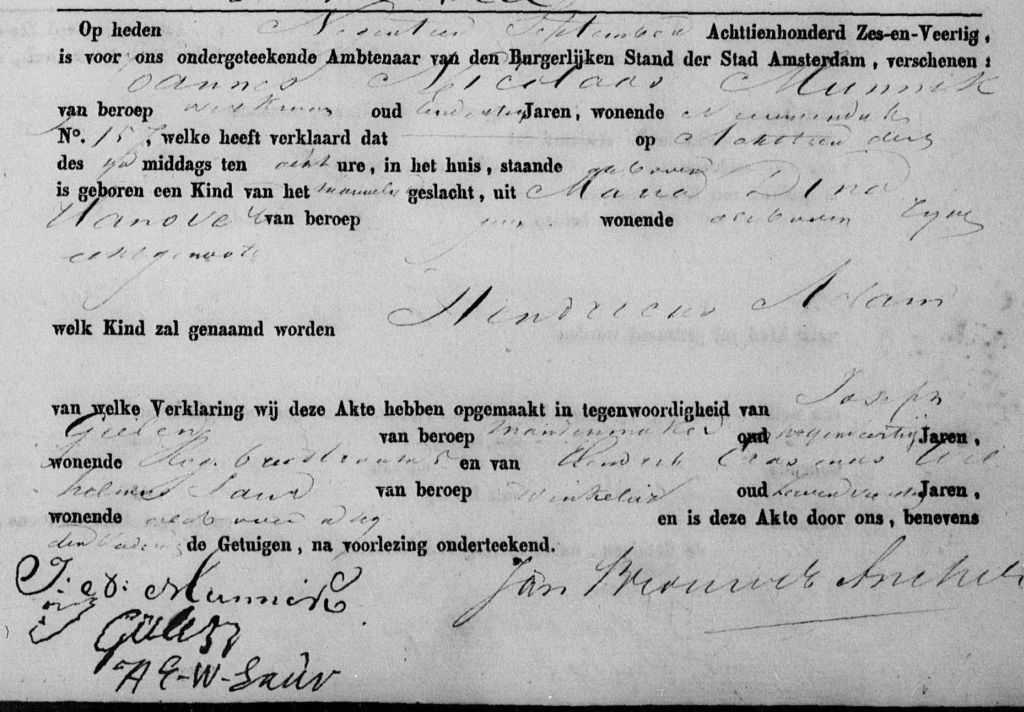 Op heden Negentien September Achttienhonderd Zes-en-Veertig,
is voor ons ondergeteekende Ambtenaar van den Burgerlijken Stand der Stad Amsterdam, verschenen:
Joannes Nicolaas Munnik
van beroep werkman oud Jaren, wonende Nieuwendijk
No. 157, welke heeft verklaard dat op Achttien dezer
des middags ten acht ure, in het huis, staande als boven
is geboren een Kind van het mannelijk geslacht, uit Maria Dina
Hanover van beroep geen wonende als boven Zijne
echtgenoote
welk Kind zal genaamd worden Hendricus Adam
van welke Verklaring wij deze Akte hebben opgemaakt in tegenwoordigheid van Joseph
Gielen van beroep mandenmaker oud Jaren,
wonende en van Hendrik Erasmus Wil
helmus Saur van beroep winkelier oud Jaren,
wonende als boven en is deze Akte door ons, benevens
den Vader en de Getuigen, na voorlezing onderteekend.
Munnik
Jan Brouwer
Gielen
H E-W-Saur